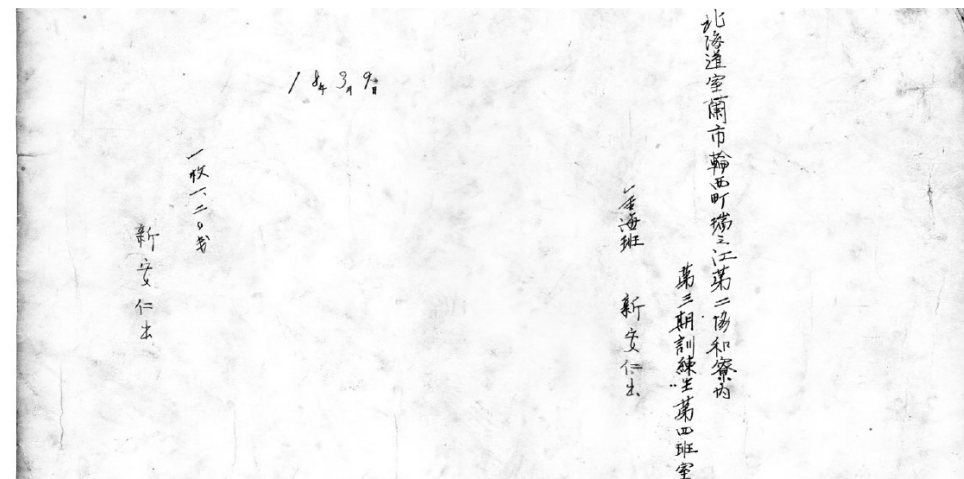 北海道室蘭市輪西町瑞之江第二協和寮内
第三期訓練生第四班室
金海班 新安仁出
18年3月9日
一枚一、二〇戋
新安仁出